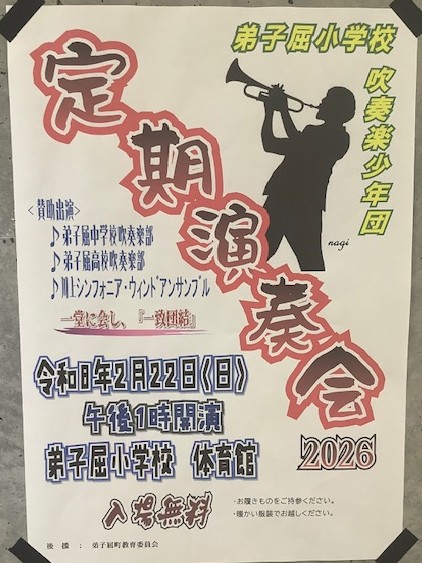 弟子屈小学校
吹奏楽少年団
定期演奏会
2026
nagi
<賛助出演>
♪弟子屈中学校吹奏楽部
♪弟子屈高校吹奏楽部
♪川上シンフォニア・ウィンドアンサンブル
一堂に会し、『一致団結』
令和8年2月22日(日)
午後1時開演
弟子屈小学校 体育館
入場無料
・お履きものをご持参ください。
・暖かい服装でお越しください。
後援 : 弟子屈町教育委員会